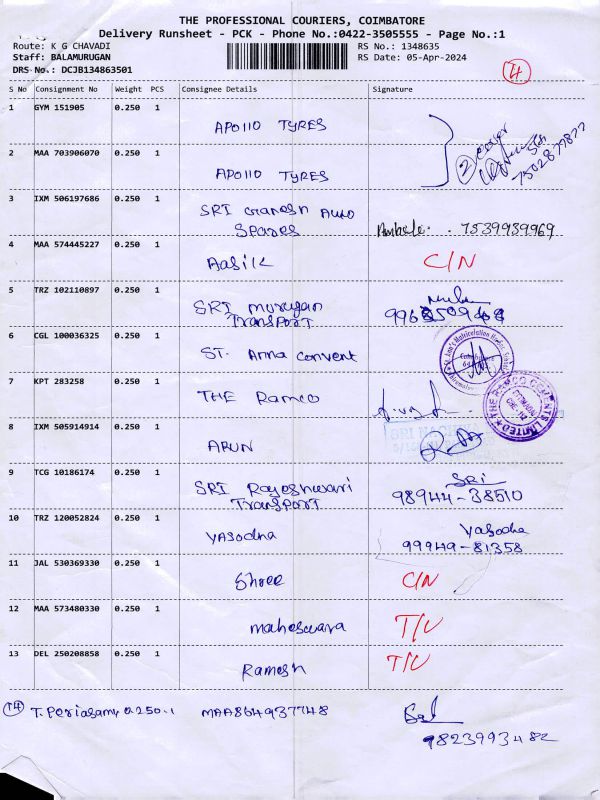 THE PROFESSIONAL COURIERS, COIMBATORE
Delivery Runsheet - PCK - Phone No.:0422-3505555 - Page No.:1
Route: K G CHAVADI
RS No.: 1348635
Staff: BALAMURUGAN
RS Date: 05-Apr-2024
DRS No.: DCJB134863501
14
S No Consignment No Weight PCS Consignee Details Signature
1 GYM 151905 0.250 1 APOllO TYRES
2 MAA 703906070 0.250 1 APOllO TYRES
2 cover
7502877877
3 IXM 506197686 0.250 1 SRI Ganesh Auto
Spares
7539939969
4 MAA 574445227 0.250 1 Aasik C/N
5 TRZ 102110897 0.250 1 SRI Murugan
Transport
6 CGL 100036325 0.250 1 ST. Anna Convent
7 KPT 283258 0.250 1 THE Ramco
THE RAMCO CEMENTS LIMITED
8 IXM 505914914 0.250 1 ARUN
9 TCG 10186174 0.250 1 SRI Rajeshwari SRI
Transport 98944-38510
10 TRZ 120052824 0.250 1 Yasodha Yasodha
99949-81358
11 JAL 530369330 0.250 1 Shree C/N
12 MAA 573480330 0.250 1 Maheswara T/U
13 DEL 250208858 0.250 1 Ramesh T/U
14 T. Periasamy 0.250.1 MAA864937748
9823993482